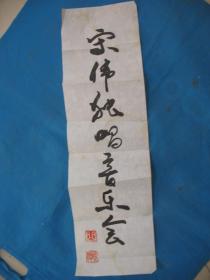 宋伟独唱音乐会